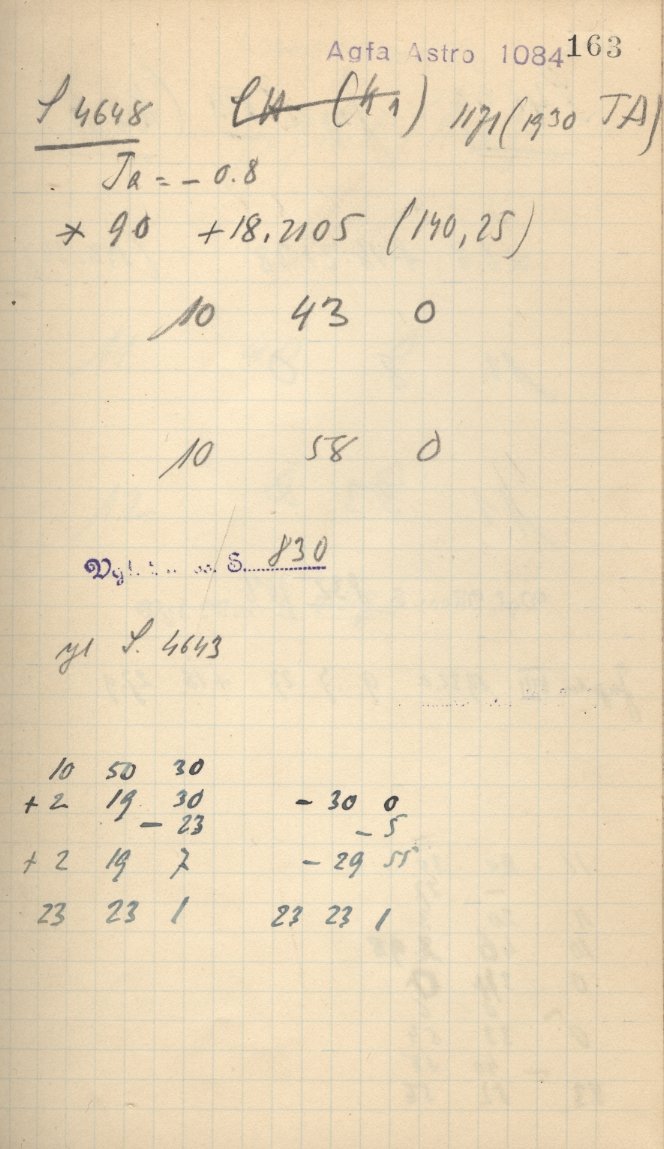 Agfa Astro 1084 163
S 4648 (K1) 1171 (1930 TA)
Ta = - 0.8
* 90 +18.2105 (140,25)
10 43 0
10 58 0
Vgl. S. 830
vgl S. 4643
10 50 30
+ 2 19 30 - 30 0
- 23 - 5
+ 2 19 7 - 29 55
23 23 1 23 23 1